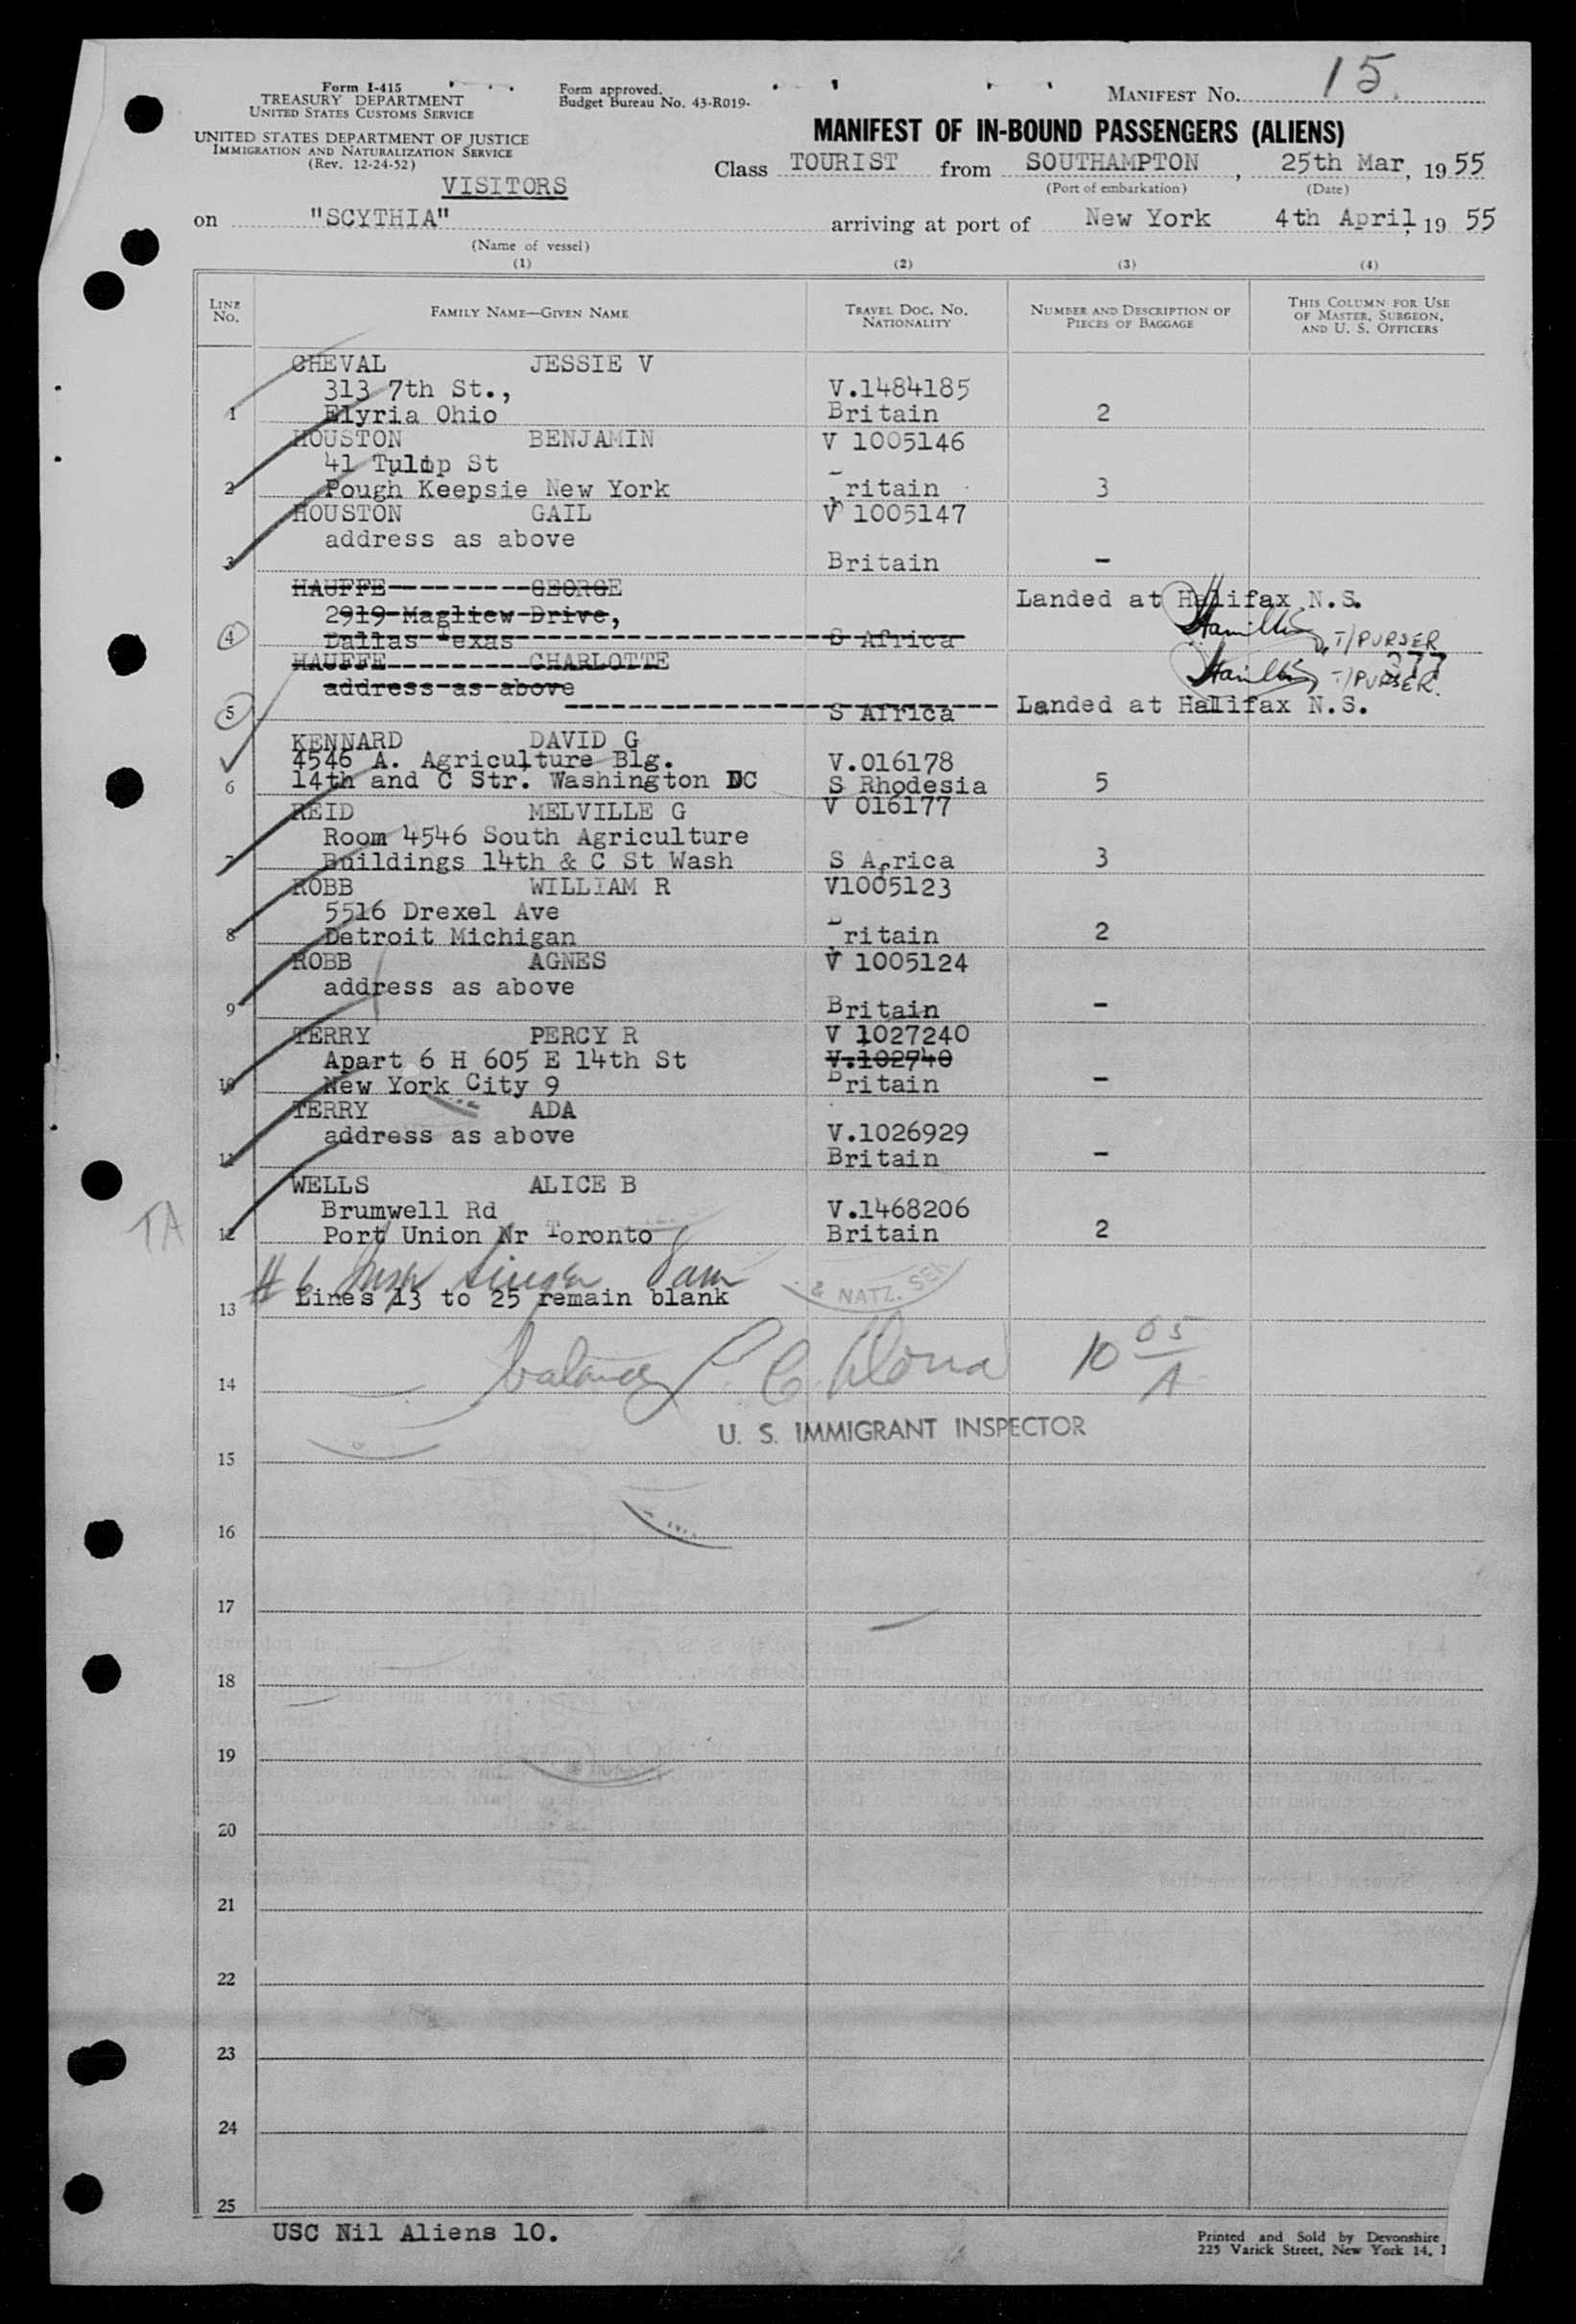 Form I-415
TREASURY DEPARTMENT
UNITED STATES CUSTOMS SERVICE
UNITED STATES DEPARTMENT OF JUSTICE
IMMIGRATION AND NATURALIZATION SERVICE
(Rev. 12-24-52)
Form approved.
Budget Bureau No. 43-R019-
MANIFEST NO. 15
MANIFEST OF IN-BOUND PASSENGERS (ALIENS)
Class TOURIST from SOUTHAMPTON, 25th Mar, 1955
(Port of embarkation) (Date)
VISITORS
on "SCYTHIA" arriving at port of New York 4th April, 1955
(Name of vessel)
(1) (2) (3) (4)
LINE No. FAMILY NAME—GIVEN NAME TRAVEL DOC. NO. NATIONALITY NUMBER AND DESCRIPTION OF PIECES OF BAGGAGE THIS COLUMN FOR USE OF MASTER, SURGEON, AND U. S. OFFICERS
CHEVAL JESSIE V
313 7th St., V.1484185
1 Elyria Ohio Britain 2
HOUSTON BENJAMIN V 1005146
41 Tulip St
2 Pough Keepsie New York Britain 3
HOUSTON GAIL V 1005147
address as above
3 Britain -
HAUFFE GEORGE Landed at Halifax N.S.
2919 Magliew Drive, Hamilton T/PURSER
4 Dallas Texas S Africa
HAUFFE CHARLOTTE 377
address as above Hamilton T/PURSER.
5 S Africa Landed at Halifax N.S.
KENNARD DAVID G
4546 A. Agriculture Blg. V.016178
6 14th and C Str. Washington DC S Rhodesia 5
REID MELVILLE G V 016177
Room 4546 South Agriculture
7 Buildings 14th & C St Wash S Africa 3
ROBB WILLIAM R V1005123
5516 Drexel Ave
8 Detroit Michigan Britain 2
ROBB AGNES V 1005124
address as above
9 Britain -
TERRY PERCY R V 1027240
Apart 6 H 605 E 14th St V.102740
10 New York City 9 Britain -
TERRY ADA
address as above V.1026929
11 Britain -
WELLS ALICE B
Brumwell Rd V.1468206
TA
12 Port Union Nr Toronto Britain 2
# 6 8 am
& NATZ. SER
13 Lines 13 to 25 remain blank
14 balance P. C. 10 05/A
U. S. IMMIGRANT INSPECTOR
15
16
17
18
19
20
21
22
23
24
25
USC Nil Aliens 10.
Printed and Sold by Devonshire
225 Varick Street, New York 14,